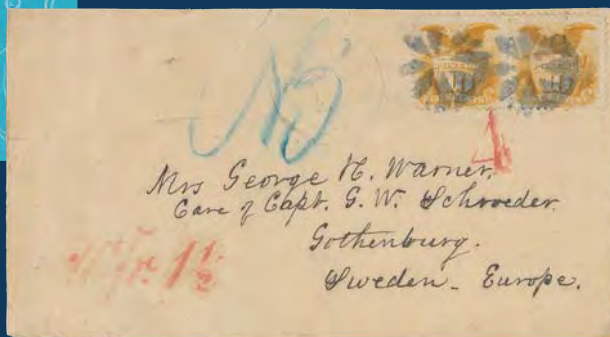 Mrs George H. Warner.
Care of Capt. G. W. Schroeder.
Gothenburg.
Sweden - Europe.
1½